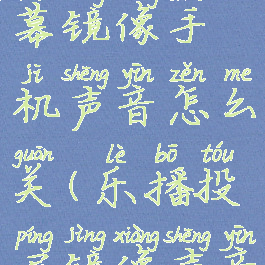 幕镜像手
jī shēng yīn zěn me
机声音怎么
guān lè bō tóu
关(乐播投
píng jìng xiàng shēng yīn
屏镜像声音